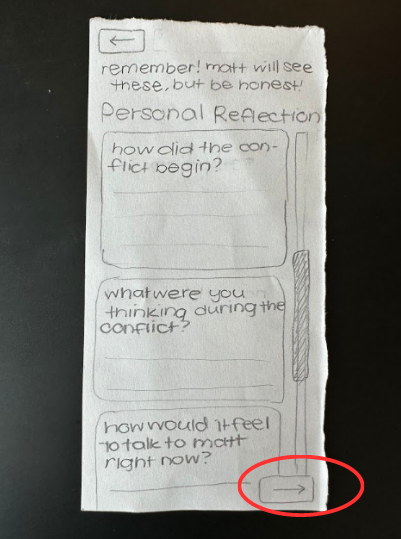 remember! matt will see
these, but be honest!
Personal Reflection
how did the con-
flict begin?
what were you
thinking during the
conflict?
how would it feel
to talk to matt
right now?